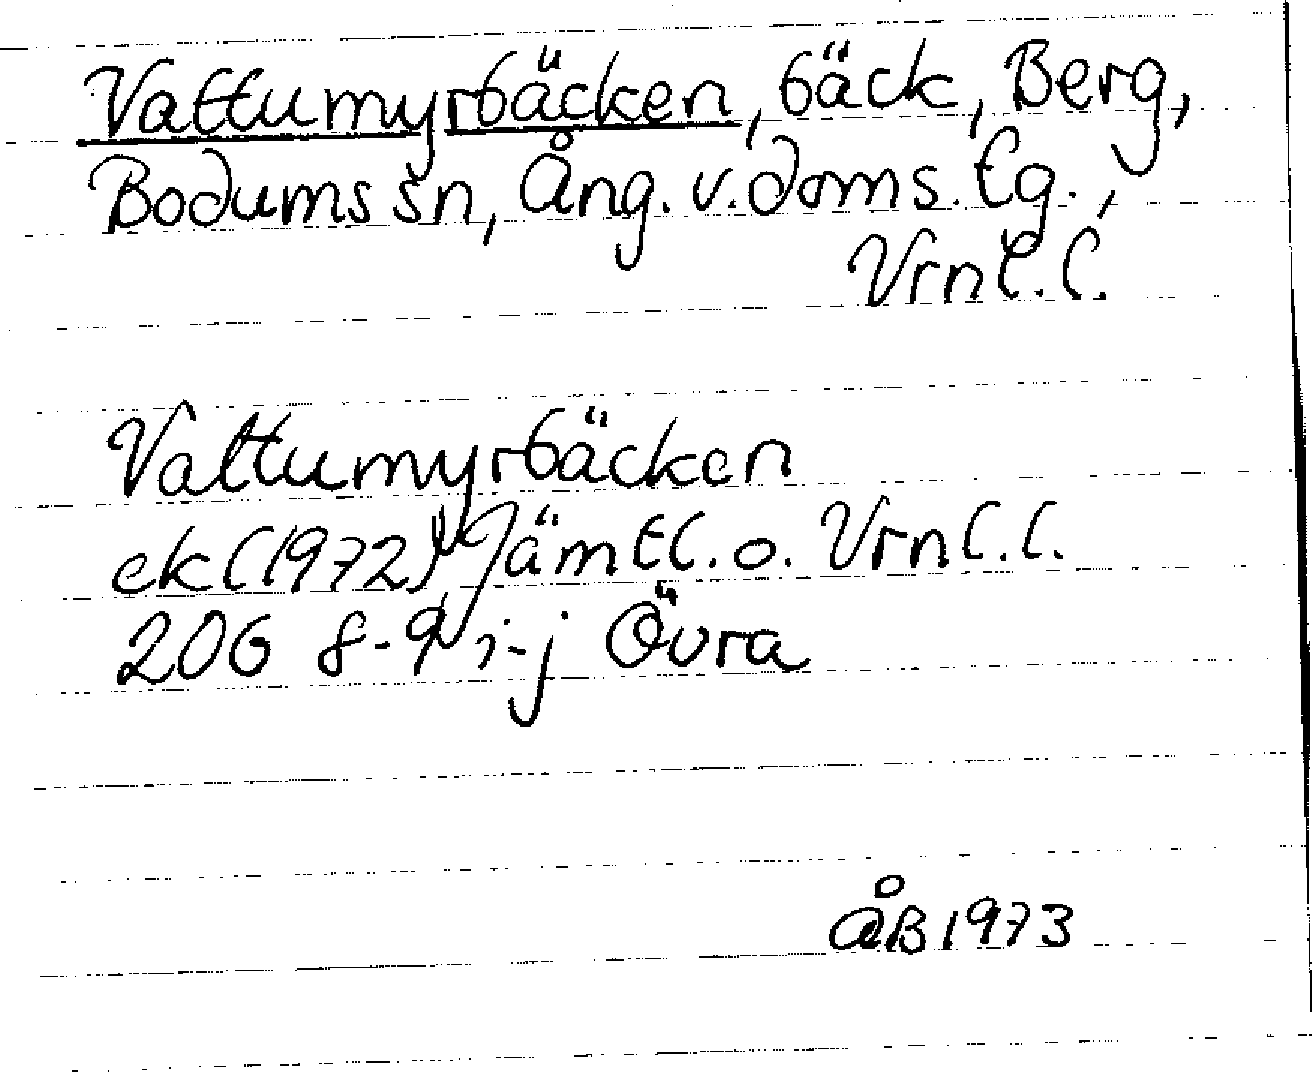 Vattumyrbäcken, bäck, Berg,
Bodums sn, Ång. v. doms. tg.,
Vrnl. l.
Vattumyrbäcken
ek (1972) Jämtl. o. Vrnl. l.
206 8-9 i-j Övra
ÅB 1973